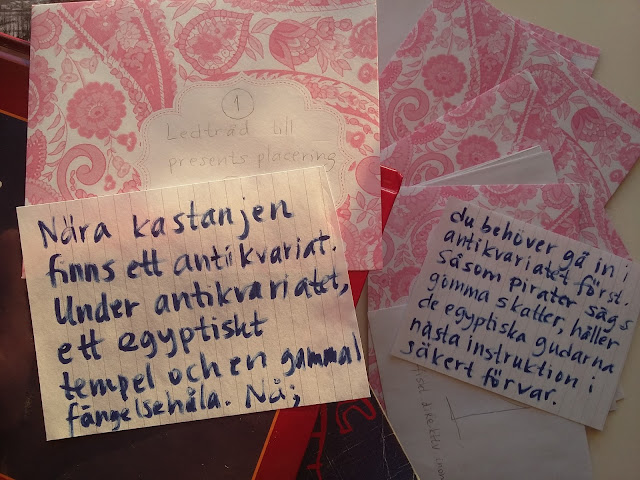 1
Ledtråd till
presents placering
Nära kastanjen
finns ett antikvariat.
Under antikvariatet,
ett egyptiskt
tempel och en gammal
fängelsehåla. Nå;
du behöver gå in i
antikvariatet först.
Såsom pirater sägs
gömma skatter, håller
de egyptiska gudarna
nästa instruktion i
säkert förvar.